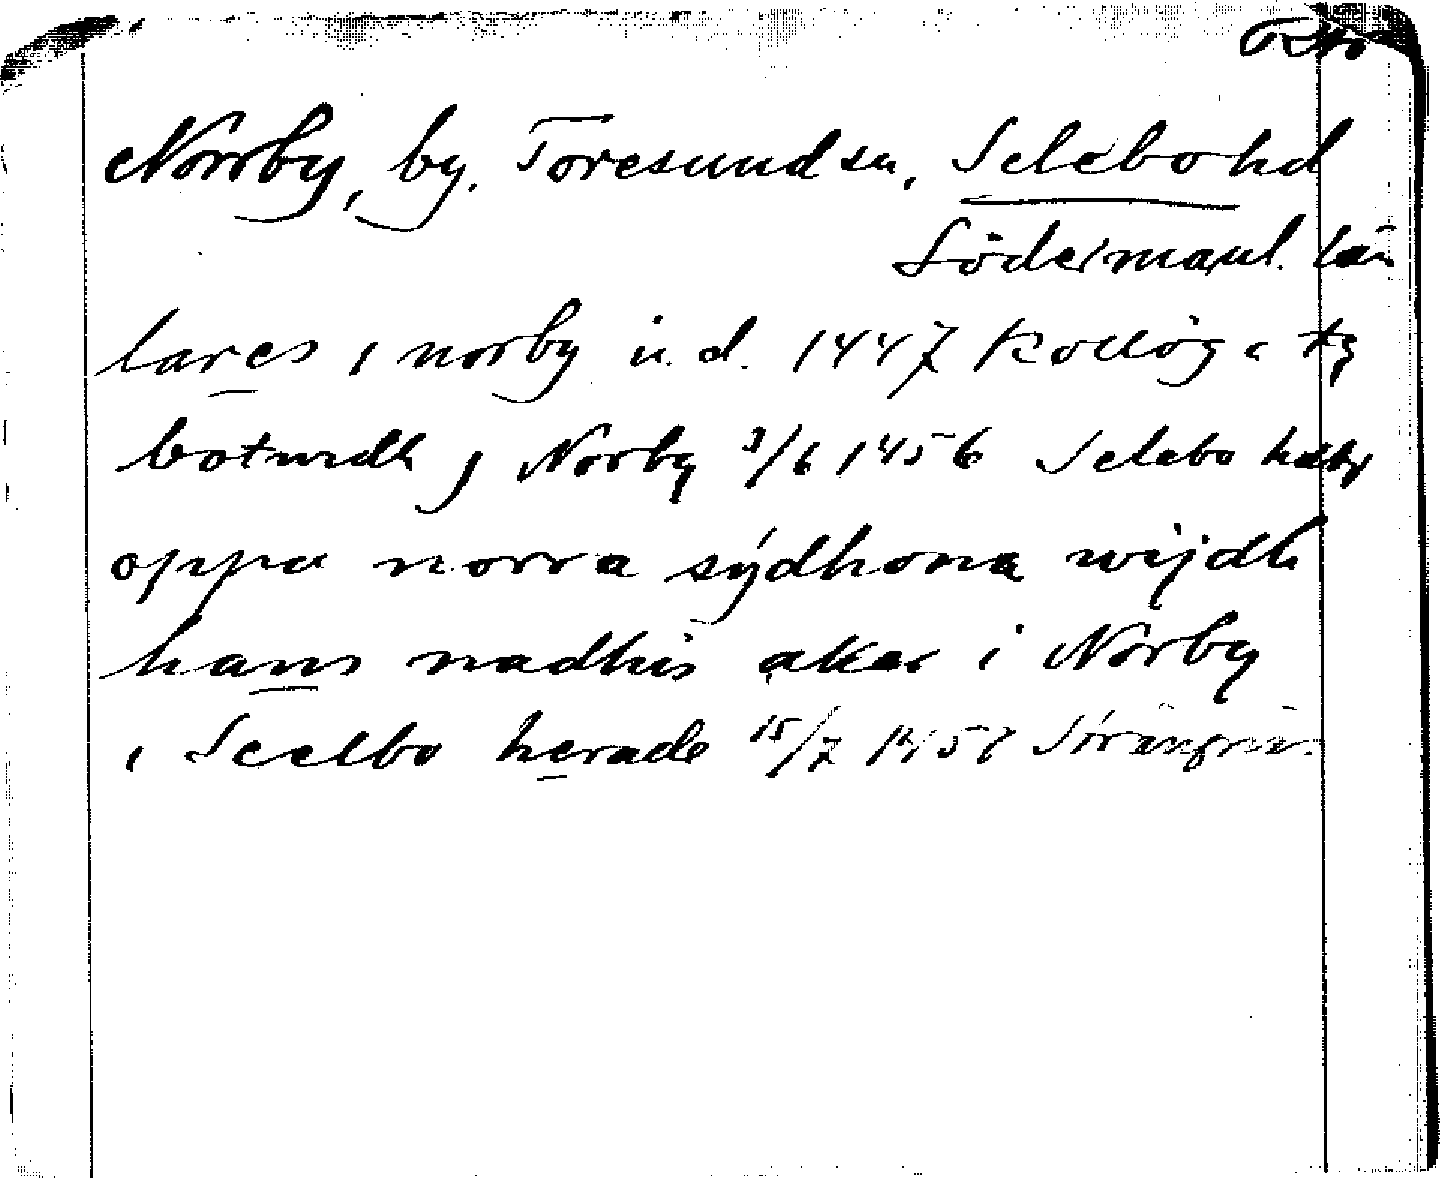 Norrby, by, Toresund sn, Selebo hd
Södermanl. län
lares i norby u. d. 1447
botwidh j Norby 3/6 1456 Selebo
oppa norra sydhona wijdh
hans nadhis aker i Norby
i Seelbo herade 15/7 1457 Strängnäs